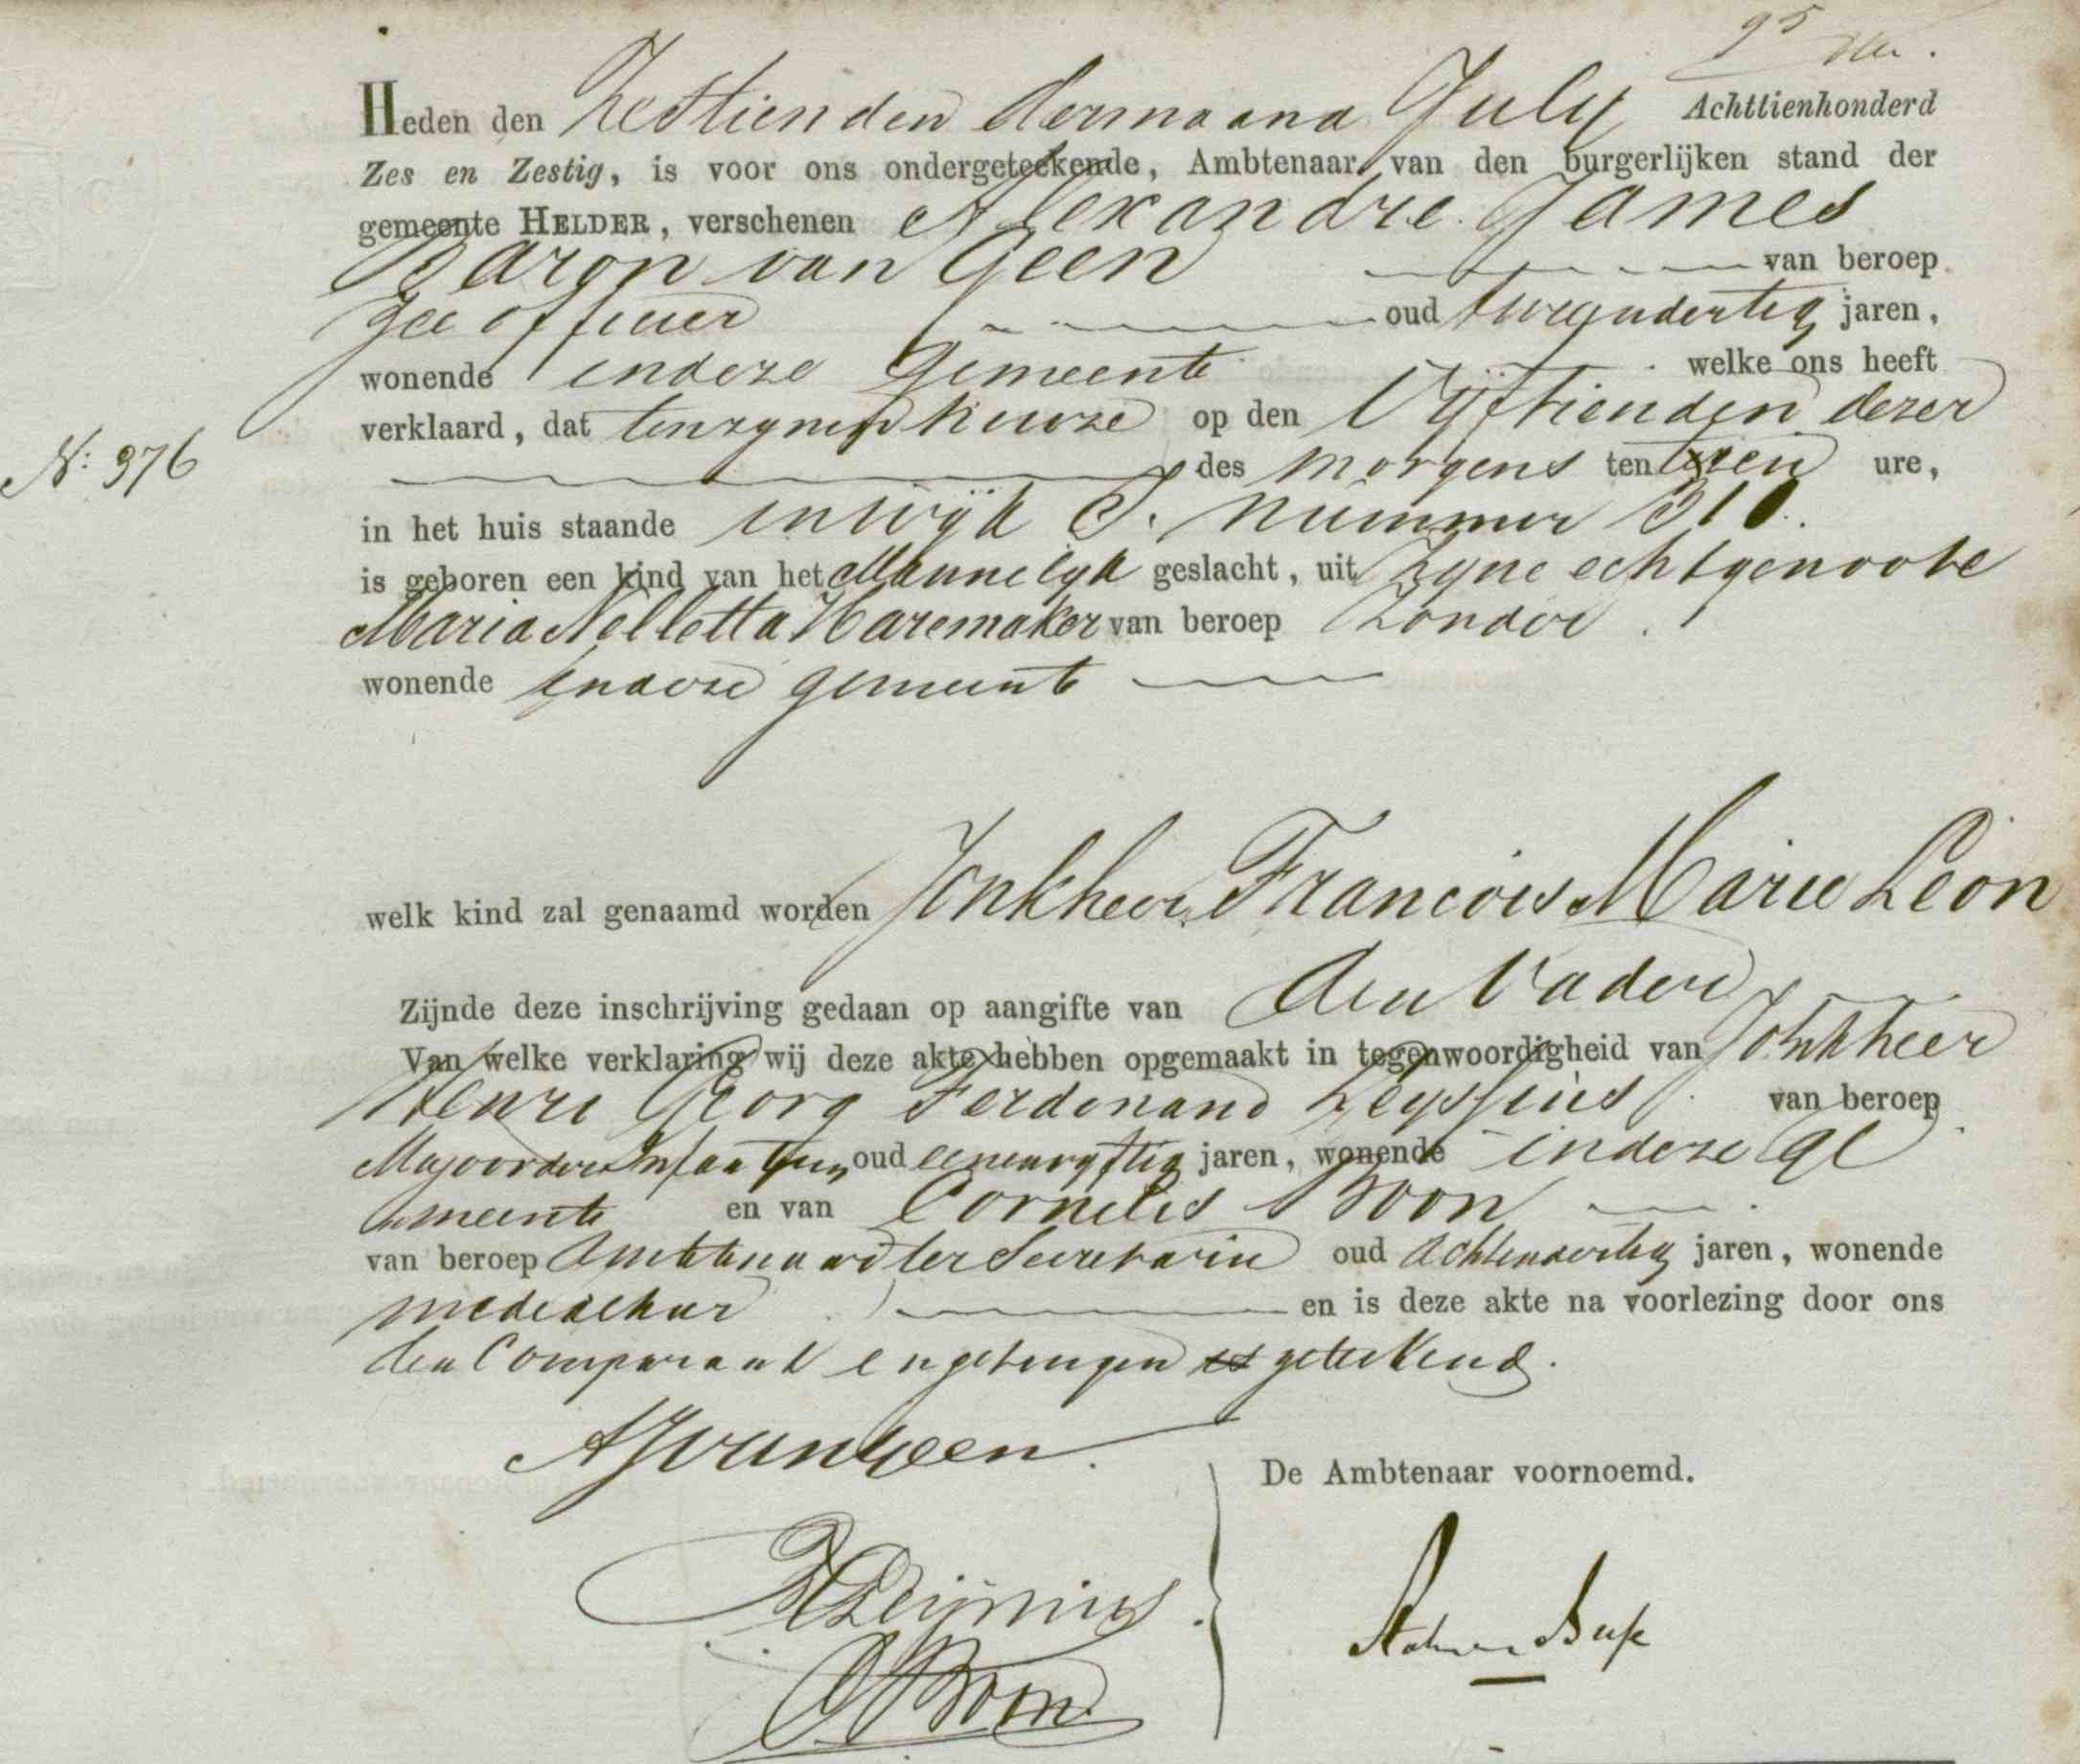 Heden den Zestienden dermaand July Achttienhonderd
Zes en Zestig, is voor ons ondergeteekende, Ambtenaar van den burgerlijken stand der
gemeente HELDER, verschenen Alexandre James
Baron van Geen van beroep
Zee officier oud tweeendertig jaren,
wonende indeze Gemeente welke ons heeft
verklaard, dat tenzynen huize op den Vijftienden dezer
N: 376
des morgens ten tien ure,
in het huis staande inwijk S. nummer 310.
is geboren een kind van het Mannelyk geslacht, uit zyne echtgenoote
Maria Nelletta Haremaker van beroep Zonder.
wonende indeze gemeente
welk kind zal genaamd worden Jonkheer Francois Marie Leon
Zijnde deze inschrijving gedaan op aangifte van den Vader
Van welke verklaring wij deze akte hebben opgemaakt in tegenwoordigheid van Jonkheer
Henri Georg Ferdinand Leyssius van beroep
Majoor der Infanterie oud eenenvyftig jaren, wonende indeze Ge
meente en van Cornelis Boon
van beroep Ambtenaar ter Secretarie oud Achtendertig jaren, wonende
mede alhier en is deze akte na voorlezing door ons
den Comparant en getuigen geteekend.
AJvanGeen.
De Ambtenaar voornoemd.
CBoon